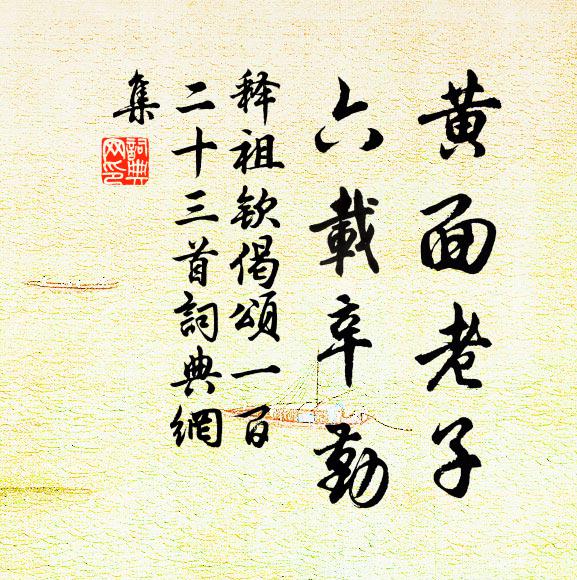 黄面老子
六載辛勤
释祖钦偈頌一百
二十三首詞典網
集
詞典
网印